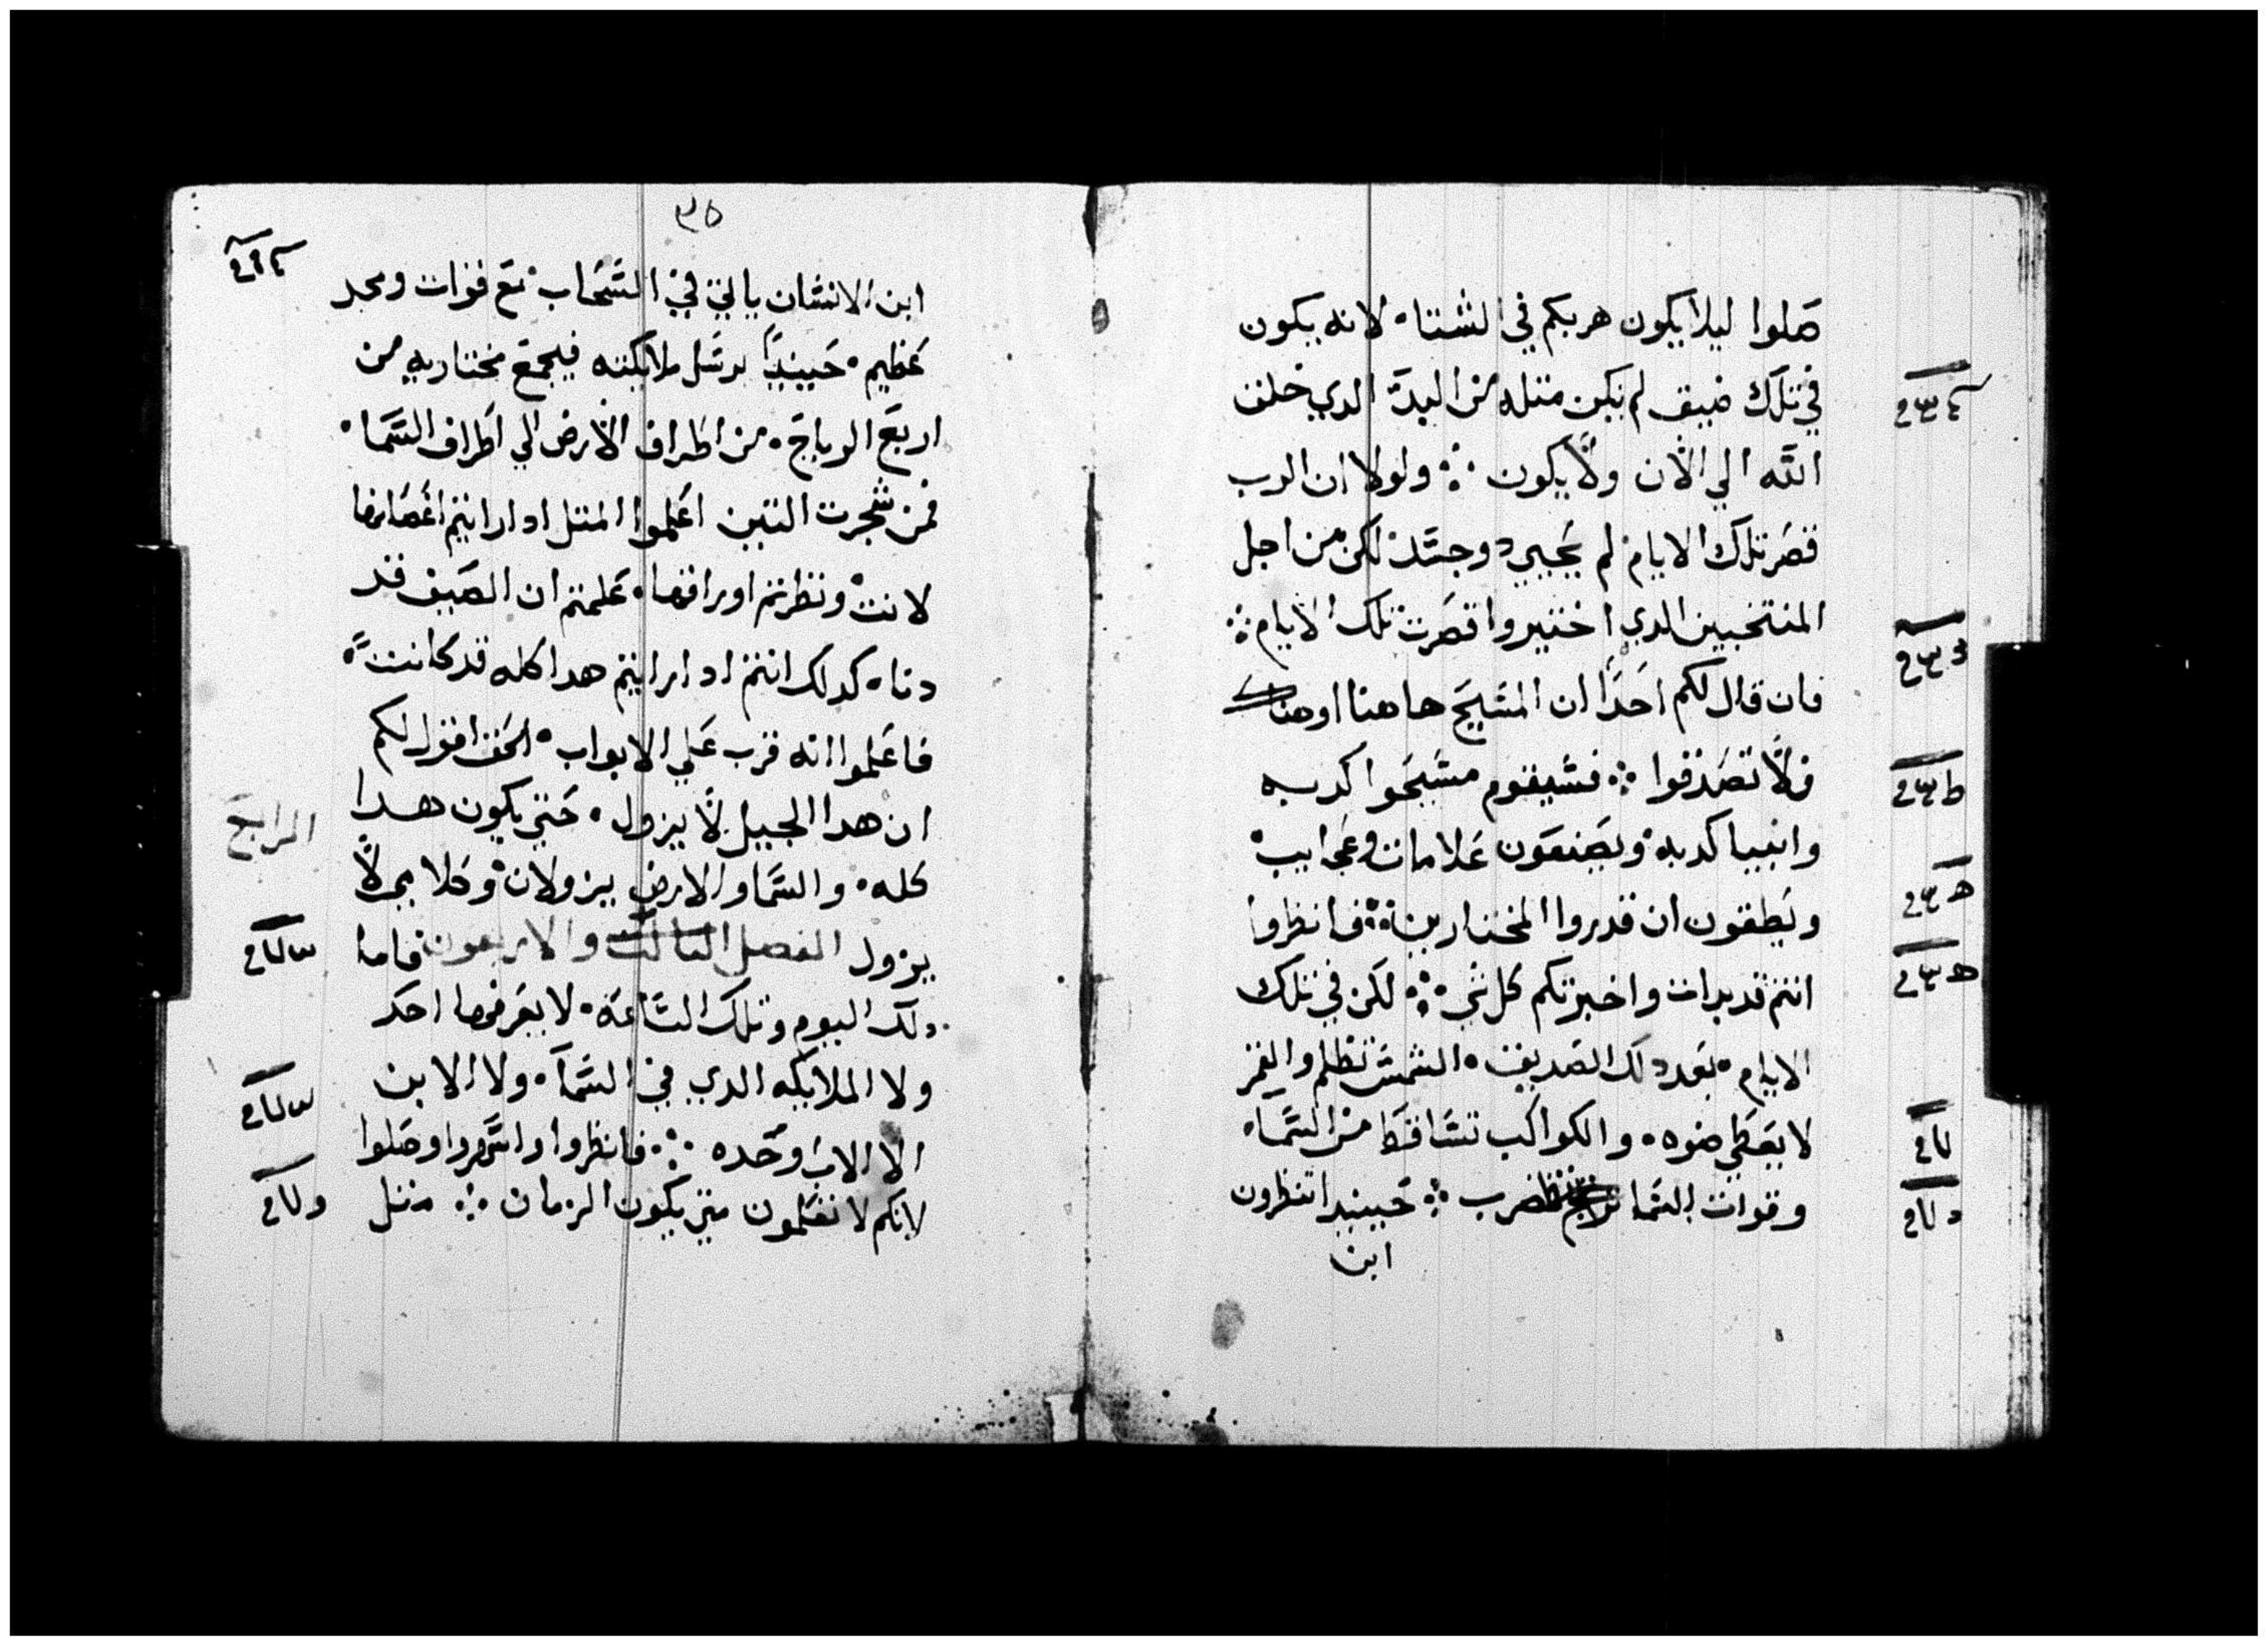 صلوا ليلا يكون هربكم في الشتاء لانه يكون
في تلك ضيق لم يكن متله من البدء الدي خلق
الله الي الان ولا يكون ولولا ان الرب
قصر تلك الايام لم يحيي دو جسد لكن من اجل
المنتخبين الدي اختيروا قصرت تلك الايام
فان قال لكم احدا ان المسيح هاهنا او هناك
فلا تصدقوا فسيقوم مسيحوا كدبه
وانبيا كدبه ويصنعون علامات وعجايب
ويطغون ان قدروا المختارين فانظروا
انتم قد بدات واخبرتكم كل شي لكن في تلك
الايام بعد دلك الضيق الشمس تظلم والقمر
لا يعطي ضوه والكواكب تساقط من السماء
وقوات السما تضطرب حينيدا تنظرون
ابن
٣٥
ابن الانسان ياتي في السحاب مع قوات ومجد
عظيم حينيدا يرسل ملايكته فيجمع مختاريه من
اربع الرياح من اطراف الارض الي اطراف السما
فمن شجرت التين اعلموا المتل ادا رايتم اغصانها
لانت ونظرتم اوراقها علمتم ان الصيف قد
دنا كدلك انتم ادا رايتم هدا كله قد كانت
فاعلموا انه قرب علي الابواب الحق اقول لكم
ان هدا الجيل لا يزول حتي يكون هدا
المرابع
كله والسما والارض يزولان وكلامي لا
يزول الفصل التالت والاربعون فاما
دلك اليوم وتلك الساعة لا يعرفها احد
ولا الملايكه الدي في السماء ولا الابن
الا الاب وحده فانظروا واسهروا وصلوا
لانكم لا تعلمون متي يكون الزمان متل